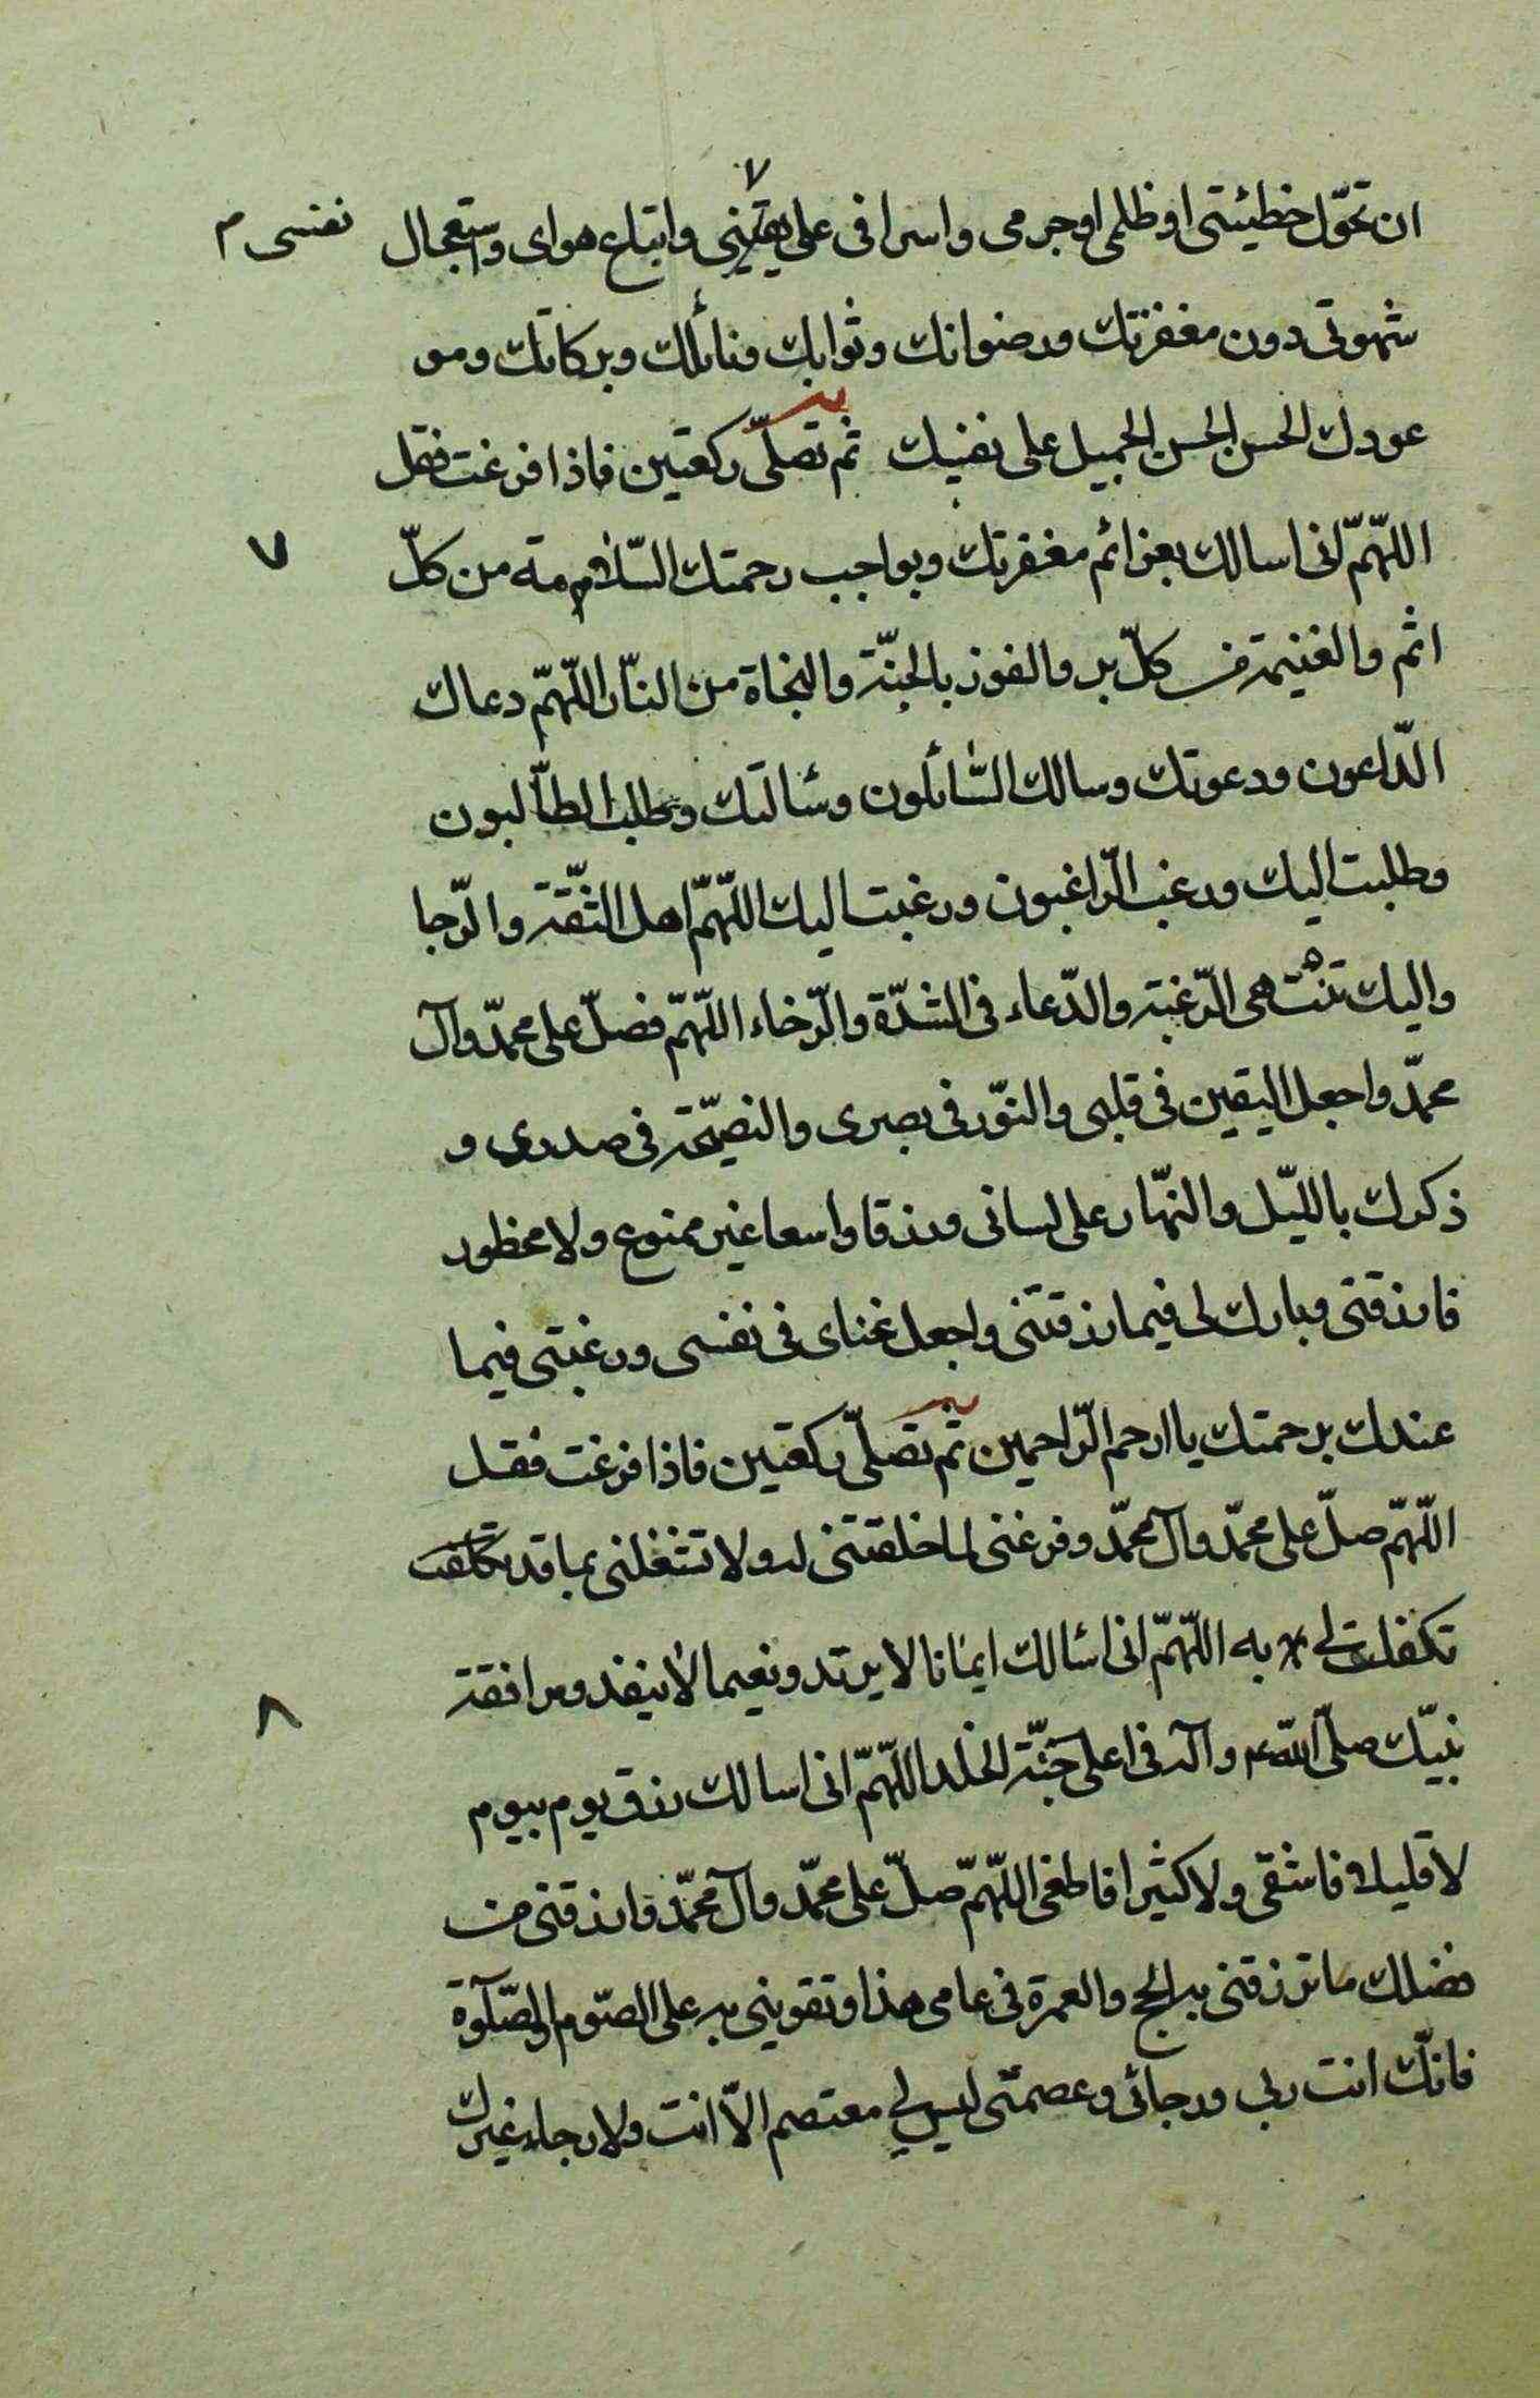 ان تحوّل خطيئتى او ظلمى او جرمى واسرافى على يقينى واتباع هواى واستعجال نفسى م
٧
شهوتى دون مغفرتك ورضوانك وثوابك ونائلك وبركاتك ومو
عودك الحسن الحسن الجميل على نفسك ثم تصلّى ركعتين فاذا فرغت فقل
اللّهمّ انى اسالك بعزائم مغفرتك وبواجب رحمتك السّلامة من كلّ
٧
اثم والغنيمة من كلّ بر والفوز بالجنّة والنجاة من النّار اللّهمّ دعاك
الدّاعون ودعوتك وسالك السّائلون وسئالتك وطلب الطّالبون
وطلبت اليك ورغب الرّاغبون ورغبت اليك اللّهمّ اهل الثقّة والرّجا
واليك تنتهى الرّغبة والدّعاء فى الشدّة والرّخاء اللّهمّ فصلّ على محمّد وآل
محمّد واجعل اليقين فى قلبى والنوّر فى بصرى والنصيحّة فى صدرى و
ذكرك بالليّل والنهّار على لسانى ورزقا واسعا غير ممنوع ولا محظور
فارزقنى وبارك لى فيما رزقتنى واجعل غناى فى نفسى ورغبتى فيما
عندك برحمتك يا ارحم الرّاحمين ثم تصلّى ركعتين فاذا فرغت فقل
اللّهمّ صلّ على محمّد وآل محمّد وفرغنى لما خلقتنى له ولا تشغلنى بما قد
تكفلت لى به اللّهمّ انى اسئالك ايمانا لا يرتد ونعيما لا ينفذ ومرافقة
٨
نبيّك صلّى اللّه ع وآله فى اعلى جنّة الخلد اللّهمّ انى اسالك رزق يوم بيوم
لا قليلا فاشقى ولا كثيرا فاطغى اللّهمّ صلّ على محمّد وآل محمّد وارزقنى من
فضلك ما ترزقنى به الحج والعمرة فى عامى هذا وتقوينى به على الصّوم والصّلوة
فانّك انت ربى ورجائى وعصمتى ليس لى معتصم الاّ انت ولا رجاء غيرك